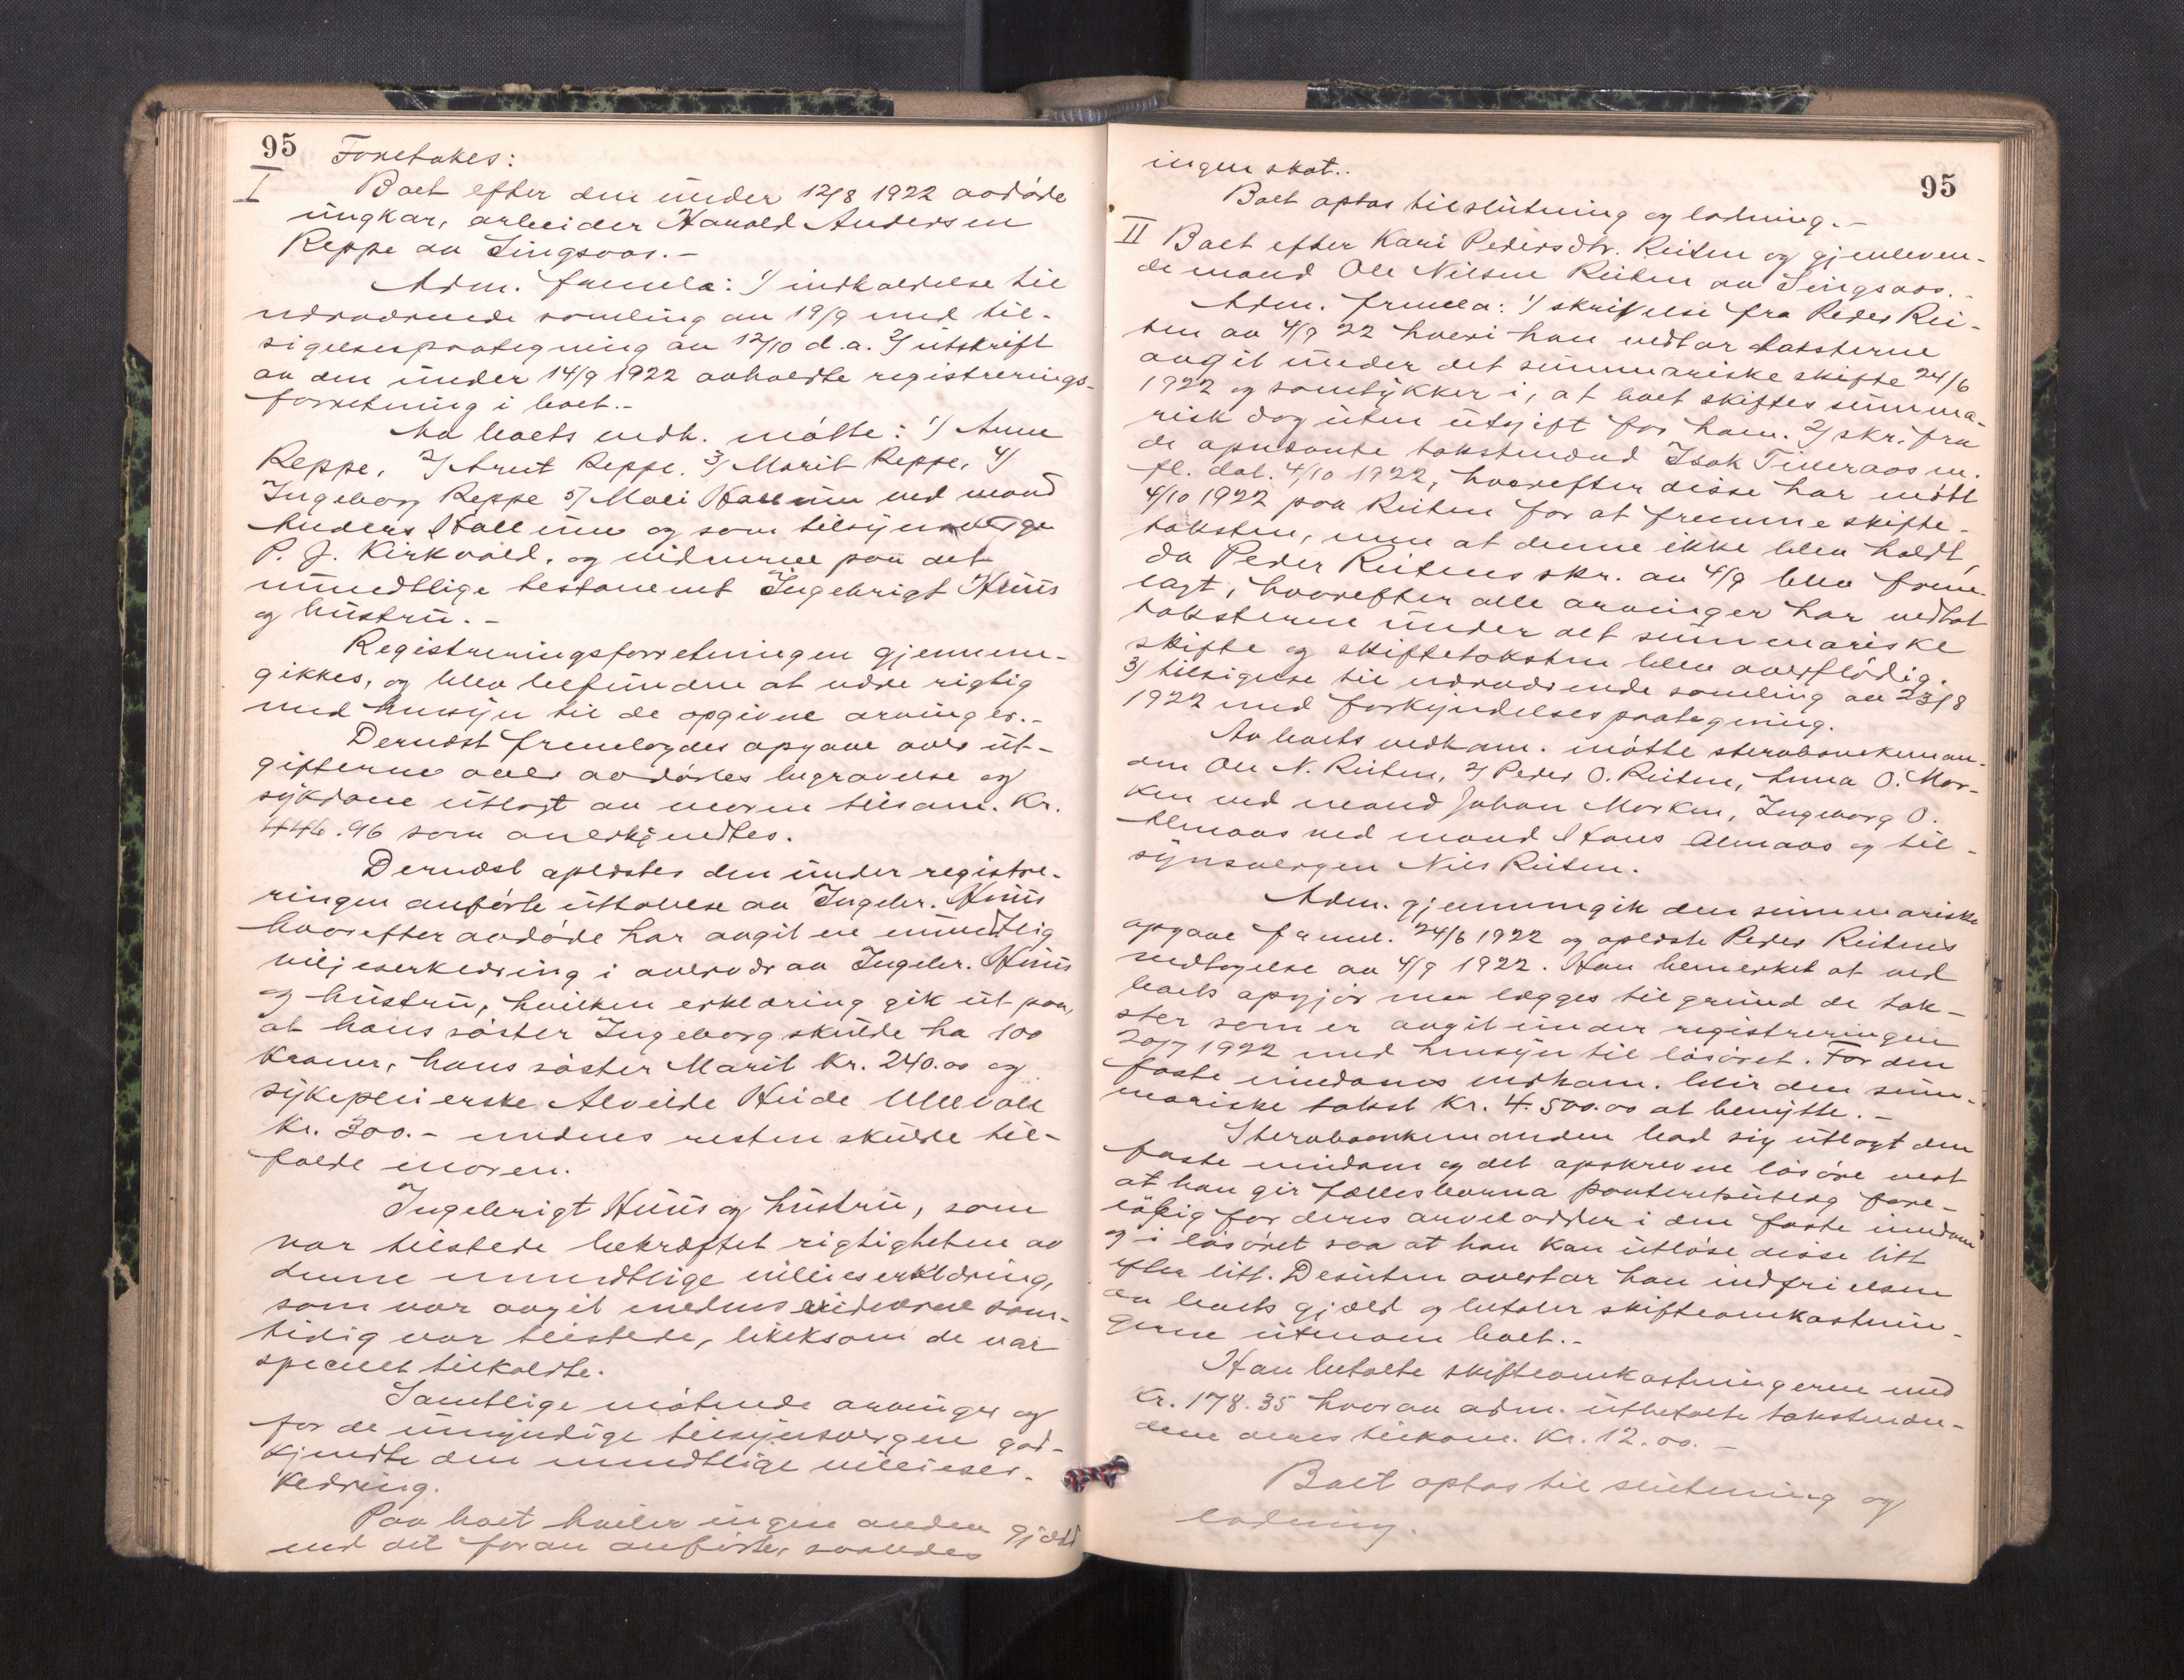 95 Foretakes:
I Boet efter den under 12/8 1922 avdöde
ungkar, arbeider Harald Andersen
Reppe av Singsaas.-
Adm. fremla: 1/ indkaldelse til
nærværende samling av 19/9 med til-
sigelsespaategning av 12/10 d.a. 2/ utskrift
av den under 14/9 1922 avholdte registrerings-
forretning i boet.-
Av boets vedk. mötte: 1/ Anne
Reppe, 2/ Arnt Reppe. 3/ Marit Reppe, 4/
Ingeborg Reppe 5/ Mali Hallinn ved mand
Anders Hallinn og som tilsynsverge
P. J. Kirkvold, og vidnerne paa det
mundtlige testament Ingebrigt Huus
og hustru.-
Registreringsforretningen gjennem-
gikkes, og blev befundne at være rigtig
med hensyn til de opgivne arvinger.-
Dernæst fremlagdes opgave over ut-
gifterne over avdödes begravelse og
sykdom utlagt av moren tilsam. Kr.
446.96 som anerkjendtes.
Dernæst oplæstes den under registre-
ringen anförte uttalelse av Ingebr. Huus
hvorefter avdöde har avgit en mundtlig
viljeserklæring i overvær av Ingebr. Huus
og hustru, hvilken erklæring gik ut paa,
at hans söster Ingeborg skulde ha 100
Kroner, hans söster Marit Kr. 240.00 og
sykepleierske Alvilde Heide Ullevall
Kr. 300.- medens resten skulde til-
falde moren.
Ingebrigt Huus og hustru, som
var tilstede bekræftet rigtigheten av
denne mundtlige villieserklæring,
som var avgit medens vidnerne sam-
tidig var tilstede, likeksom de var
specielt tilkaldte.
Samtlige mötende arvinger og
for de umyndige tilsynsvergen god-
kjendte den mundtlige villieser-
klæring.
Paa boet hviler ingen anden gjæld
end det foran anförte, saaledes
95
ingen skat..
Boet optas til slutning og lodning.-
II Boet efter Kari Pedersdtr. Reiten og gjenleven-
de mand Ole Nilsen Reiten av Singsaas.-
Adm. fremla: 1/ skrivelse fra Peder Rei-
ten av 4/9 22 hvori han vedtar taksterne
avgit under det summariske skifte 24/6
1922 og samtykker i, at boet skiftes summa-
risk dog uten utgift for ham. 2/ skr. fra
de opnævnte takstmænd Isak Tilleraas m.
fl. dat. 4/10 1922, hvorefter disse har mött
4/10 1922 paa Reiten for at fremme skifte-
taksten, men at denne ikke blev holdt,
da Peder Reitens skr. av 4/9 blev frem-
lagt, hvorefter alle arvinger har vedtat
taksterne under det summariske
skifte og skiftetaksten blev overflödig.
3/ tilsigelse til nærværende samling av 23/8
1922 med forkyndelsespaategning.
Av boets vedkom. mötte sterbboenkeman-
den Ole N. Reiten, 2/ Peder O. Reiten, Anna O. Mor-
ken ved mand Johan Morken, Ingeborg O.
Almaas ved mand Hans Almaas og til-
synsvergen Nils Reiten.
Adm. gjennemgik den summariske
opgave freml. 24/6 1922 og oplæste Peder Reitens
vedtagelse av 4/9 1922. Han bemerket at ved
boets opgjör maa lægges til grund de tak-
ster som er avgit under registreringen
20/7 1922 med hensyn til lösöret. For den
faste eiendoms vedkom. blir den sum-
mariske takst Kr. 4.500.00 at benytte.-
Sterbboenkemanden bad sig utlagt den
faste eiendom og det opskrevne lösöre mot
at han gir fællesbarna panteretsutlæg fore-
löbig for deres arvelodder i den faste eiendom
og i lösöret saa at han kan utlöse disse litt
efter litt. Desuten overtar han indfrielsen
av boets gjæld og betaler skifteomkostnin-
gerne utenom boet.-
Han betalte skifteomkostningerne med
Kr. 178.35 hvorav adm. utbetalte takstmæn-
dene deres tilkom. Kr. 12.00.-
Boet optas til slutning og
lodning.